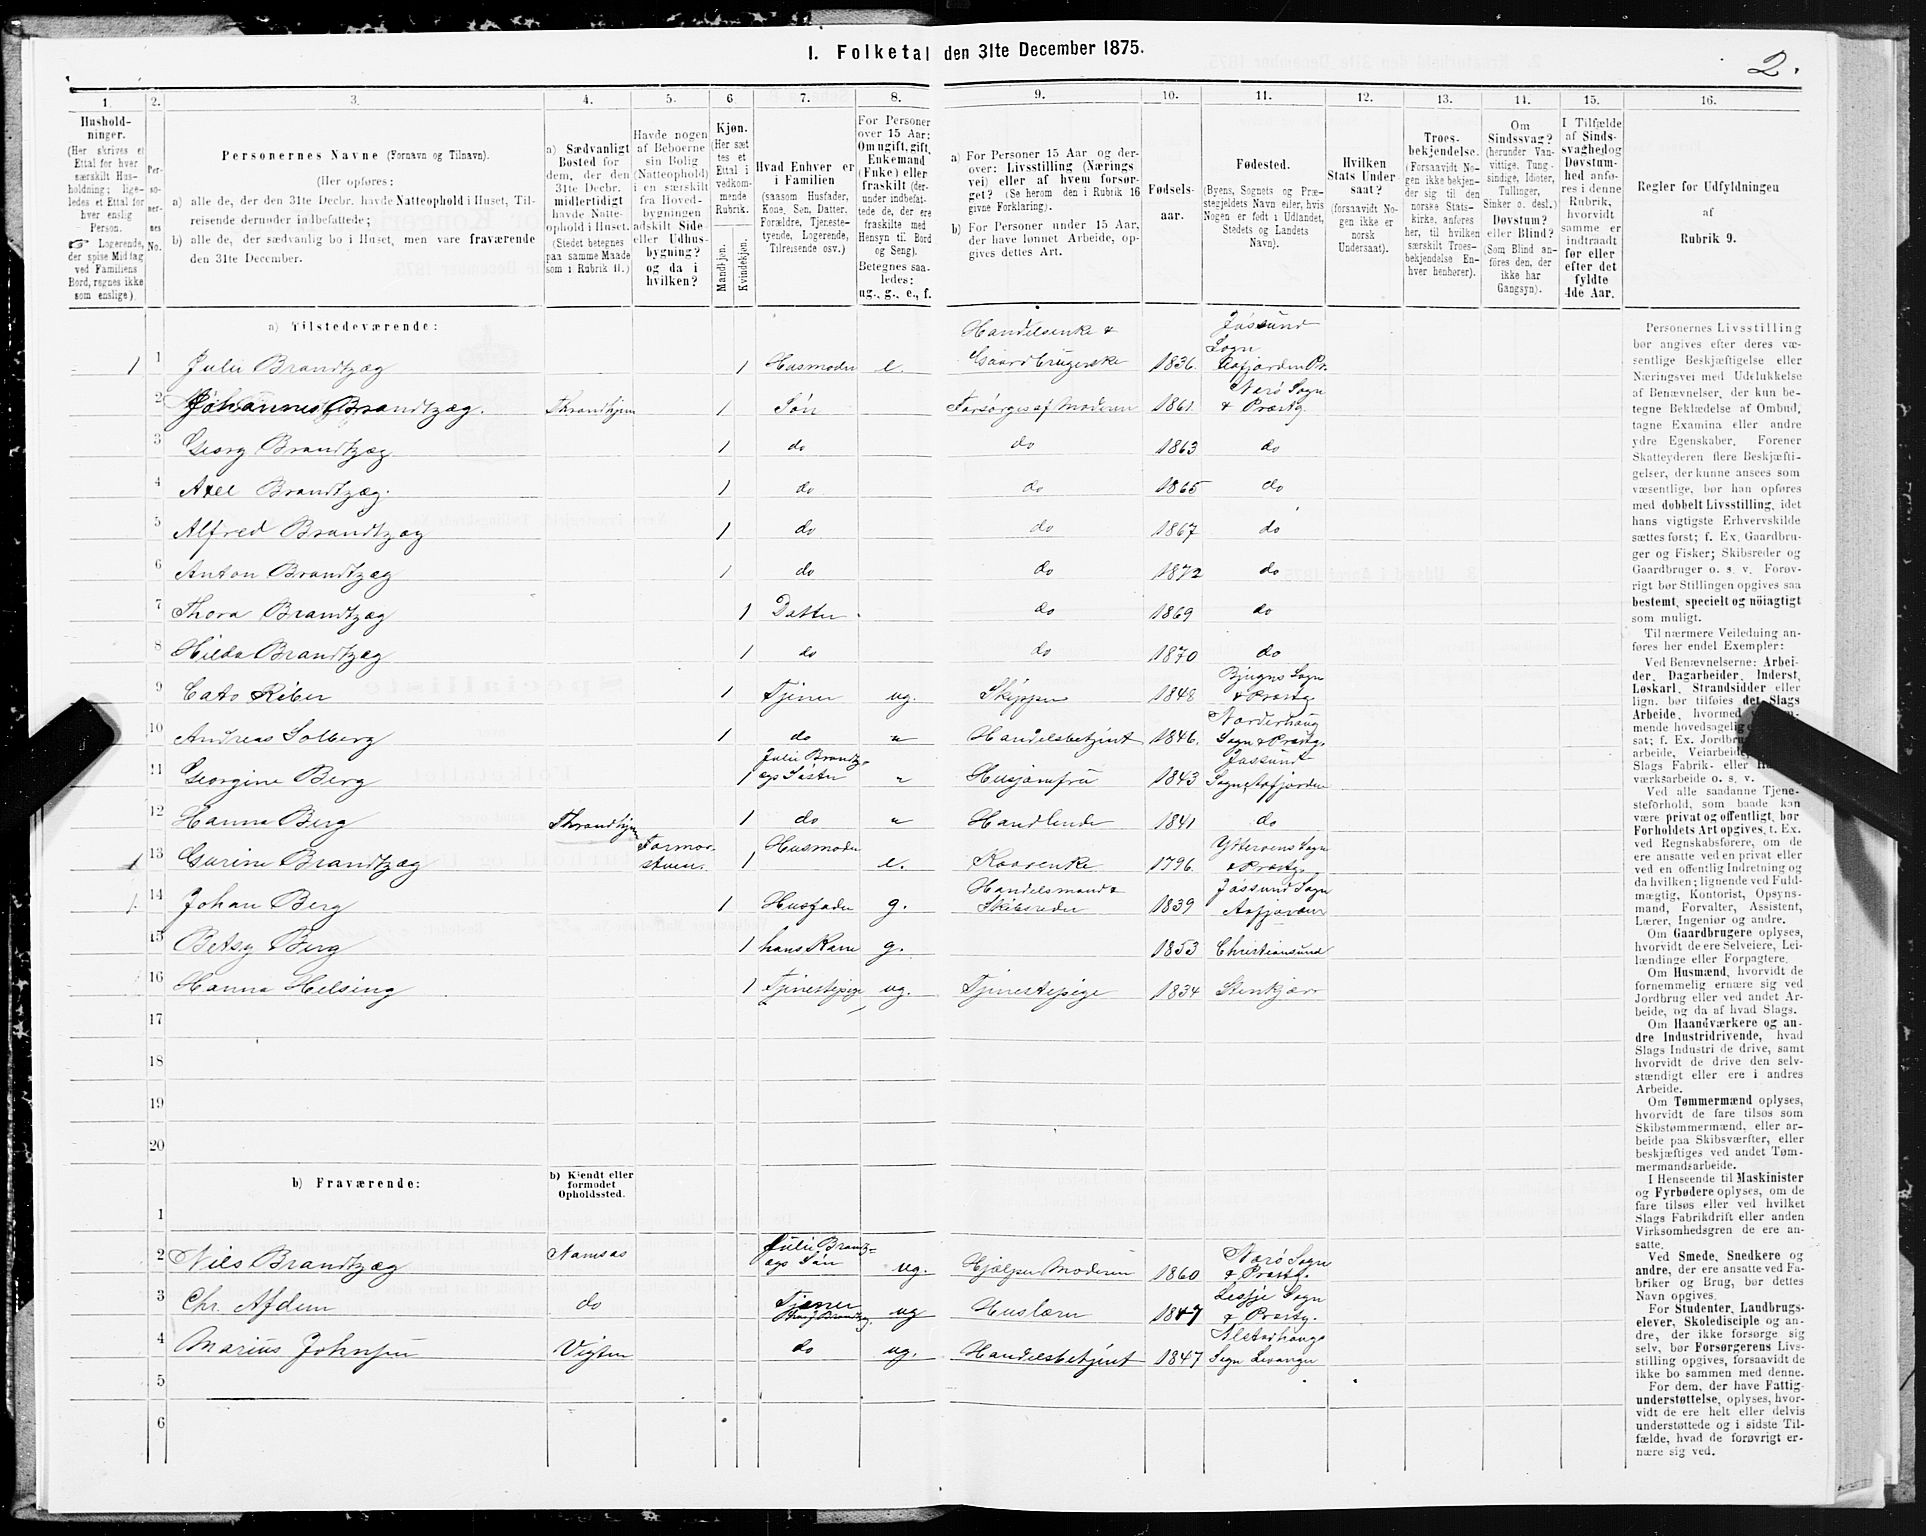 1. Folketal den 31te December 1875.
2.
1.
Hushold-
ninger.
(Her skrives et
Ettal for hver
særskilt Hus-
holdning; lige-
ledes et Ettal for
hver enslig
Person.
☞ Logerende,
der spise Middag
ved Familiens
Bord, regnes ikke
som enslige).
2.
Per-
so-
ner-
nes
No.
3.
Personernes Navne (Fornavn og Tilnavn).
(Her opføres:
a) alle de, der den 31te Decbr. havde Natteophold i Huset, Til-
reisende derunder indbefattede;
b) alle de, der sædvanlig bo i Huset, men vare fraværende
den 31te December.
4.
a) Sædvanligt
Bosted for
dem, der den
31te Decbr.
midlertidigt
havde Natte-
ophold i Huset.
(Stedet betegnes
paa samme Maade
som i Rubrik 11.)
5.
Havde nogen
af Beboerne
sin Bolig
(Natteophold)
i en særskilt
fra Hoved-
bygningen
adskilt Side-
eller Udhus-
bygning?
og da i
hvilken?
6
Kjøn.
(Her sæt
tes et
Ettal i
vedkom-
mende
Rubrik.
Mandkjøn.
Kvindekjøn.
7.
Hvad Enhver er
i Familien
(saasom Husfader,
Kone, Søn, Datter.
Forældre, Tjeneste-
tyende, Logerende,
Tilreisende osv.)
8.
For Personer
over 15 Aar:
Om ugift, gift,
Enkemand
(Enke) eller
fraskilt (der-
under indbefat-
tede de, der ere
fraskilte med
Hensyn til Bord
og Seng).
Betegnes saa-
ledes:
ug., g., e., f.
9.
a) For Personer 15 Aar og der-
over: Livsstilling (Nærings
vei) eller af hvem forsør-
get? (Se herom den i Rubrik 16
givne Forklaring).
b) For Personer under 15 Aar,
der have lønnet Arbeide, op-
gives dettes Art.
10.
Fødsels-
aar.
11.
Fødested.
(Byens, Sognets og Præ-
stegjeldets Navn eller, hvis
Nogen er født i Udlandet,
Stedets og Landets
Navn).
12.
Hvilken
Stats Under
saat?
(forsaavidt No-
gen ikke er
norsk
Undersaat).
13.
Troes-
bekjendelse.
(Forsaavidt No-
gen ikke bekjen-
der sig til den
norske Stats-
kirke, anføres
her, til hvilken
særskilt Troes-
bekjendelse En-
hver henhører).
14.
Om
Sindssvag?
(herunder Van-
vittige, Tung-
sindige, Idioter,
Tullinger,
Sinker o. desl.)
Døvstum?
eller Blind?
(Som Blind an-
føres den, der
ikke har
Gangsyn).
15.
I Tilfælde
af Sinds-
svaghed og
Døvstum-
hed anfø-
res i denne
Rubrik,
hvorvidt
samme er
indtraadt
før eller
efter det
fyldte
4de Aar.
16.
Regler for Udfyldningen
af
Rubrik 9.
a) Tilstedeværende:
1 1 Julie Brandtzæg 1 Husmoder e. Handelsenke & Gaardbrugerske 1836. Jøssund Sogn Aafjorden Pr.
2 Johannes Brandtzæg. Throndhjem 1 Søn Forsørges af Moderen 1861. Nærø Sogn & Præstg.
3 Georg Brandtzæg 1 do do 1863 do
4 Axel Brandtzæg. 1 do do 1865 do
5 Alfred Brandtzæg 1 do do 1867 do
6 Anton Brandtzæg 1 do do 1872 do
7 Thora Brandtzæg 1 Datter do 1869 do
8 Hilda Brandtzæg 1 do do 1870 do
9 Cato Riber 1 Tjener ug. Skipper 1848 Bjugns Sogn & Præstg.
10 Andreas Solberg 1 do " Handelsbetjent 1846. Norderhaug Sogn & Præstg.
11 Georgine Berg 1 Julie Brandtzægs Søster " Husjomfru 1843 Jøssund Sogn Aafjorden
12 Hanna Berg Throndhjem 1 do " Handlende 1841 do
1 13 Gurine Brandtzæg Formorstuen. 1 Husmoder e. Kaarenke 1796. Ytterøens Sogn & Præstg.
1 14 Johan Berg 1 Husfader g. Handelsmand & Skibsreder 1839 Jøssund Sogn Aafjorden
15 Betsy Berg 1 hans Kone g. 1853 Christiansund
16 Hanna Helsing 1 Tjenestepige ug. Tjenestepige 1834 Stenkjær
17
18
19
20
b) Fraværende:
b) Kjendt eller
formodet
Opholdssted.
1
2 Nils Brandtzæg Namsos Julie Brandtzægs Søn ug. Hjælper Moderen 1860 Nærø Sogn & Præstg.
3 Chr. Afdem do Tjener hos J. Brandtzæg ug Huslærer 1847 Lesje Sogn & Præstg.
4 Marius Johnsen Vigten do ug. Handelsbetjent 1847 Alstadhaug Sogn Levanger
5
6
Personernes Livsstilling
bør angives efter deres væ-
sentlige Beskjæftigelse eller
Næringsvei med Udelukkelse
af Benævnelser, der kun be-
tegne Beklædelse af Ombud,
tagne Examina eller andre
ydre Egenskaber. Forener
Skatteyderen flere Beskjæfti-
gelser, der kunne ansees som
væsentlige, bør han opføres
med dobbelt Livsstilling, idet
hans vigtigste Erhvervskilde
sættes først; f. Ex. Gaardbru-
ger og Fisker; Skibsreder og
Gaardbruger o. s. v. Forøv-
rigt bør Stillingen opgives saa
bestemt, specielt og nöiagtigt
som muligt.
Til nærmere Veiledning an-
føres her endel Exempler:
Ved Benævnelserne: Arbei-
der, Dagarbeider, Inderst,
Løskarl, Strandsidder eller
lign. bør tilføies det Slags
Arbeide, hvormed
mende hovedsagelig
sat; f. Ex. Jordbru
arbeide, Veiarbeide,
Slags Fabrik- eller
værksarbeide o. s. v.
Ved alle saadanne Tjene-
steforhold, som baade kan
være privat og offentligt, bør
Forholdets Art opgives, t. Ex.
ved Regnskabsførere, om de
ere ansatte ved en privat eller
ved en offentlig Indretning og
da hvilken; lignende ved Fuld-
mægtig, Kontorist, Opsyns-
mand, Forvalter, Assistent,
Lærer, Ingeniør og andre.
Om Gaardbrugere oplyses,
hvorvidt de ere Selveiere, Lei-
lændinge eller Forpagtere.
Om Husmænd, hvorvidt de
fornemmelig ernære sig ved
Jordbrug eller ved andet Ar-
beide, og da af hvad Slags.
Om Haandværkere og an-
dre Industridrivende, hvad
Slags Industri de drive, samt
hvorvidt de drive den selv-
stændigt eller ere i andres
Arbeide.
Om Tømmermænd oplyses,
hvorvidt de fare tilsøs som
Skibstømmermænd, eller ar-
beide paa Skibsværfter, eller
beskjæftiges ved andet Tøm-
mermandsarbeide.
I Henseende til Maskinister
og Fyrbødere oplyses, om de
fare tilsøs eller ved hvilket
Slags Fabrikdrift eller anden
Virksomhedsgren de ere an-
satte.
Ved Smede, Snedkere og
andre, der ere ansatte ved Fa-
briker og Brug, bør dettes
Navn opgives.
For Studenter, Landbrugs-
elever, Skoledisciple og an-
dre, der ikke forsørge sig
selv, bør Forsørgerens Livs-
stilling opgives, forsaavidt de
ikke bo sammen med denne.
For dem, der have Fattig-
understøttelse, oplyses, hvor-
vidt de ere helt eller delvis
understøttede og i sidste Til-
fælde, hvad de forøvrigt er-
nære sig ved.